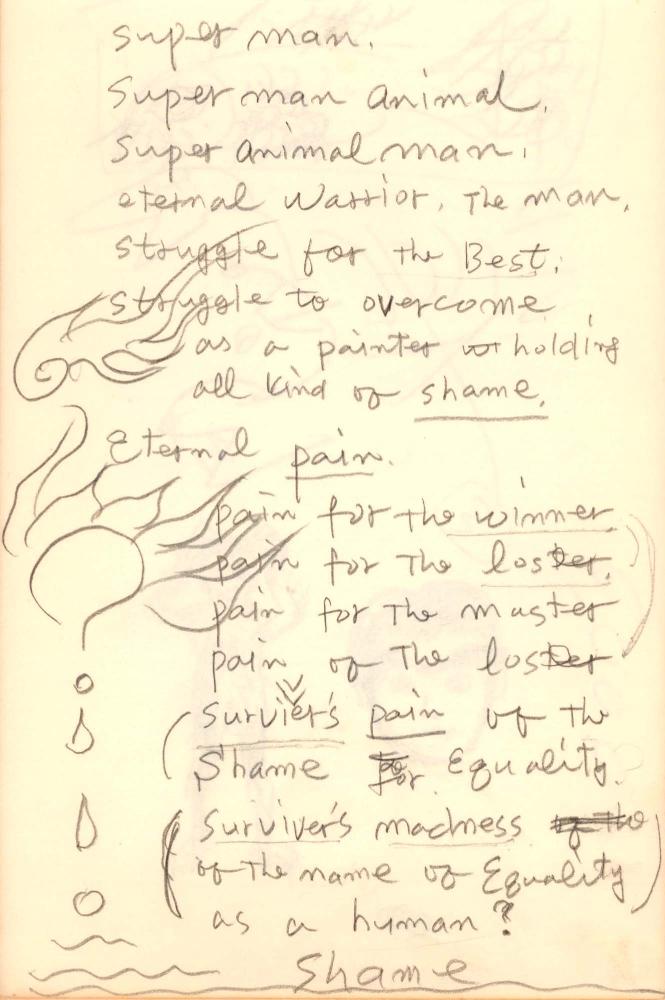 super man.
Super man animal.
Super animal man.
eternal warrior. The man.
struggle for the Best.
struggle to overcome
as a painter holding
all kind of shame.
Eternal pain.
pain for the winner
pain for the loser.
pain for the master
pain of the loser
Survier's pain of the
Shame for Equality.
Surviver's madness
of the name of Equality
as a human?
Shame